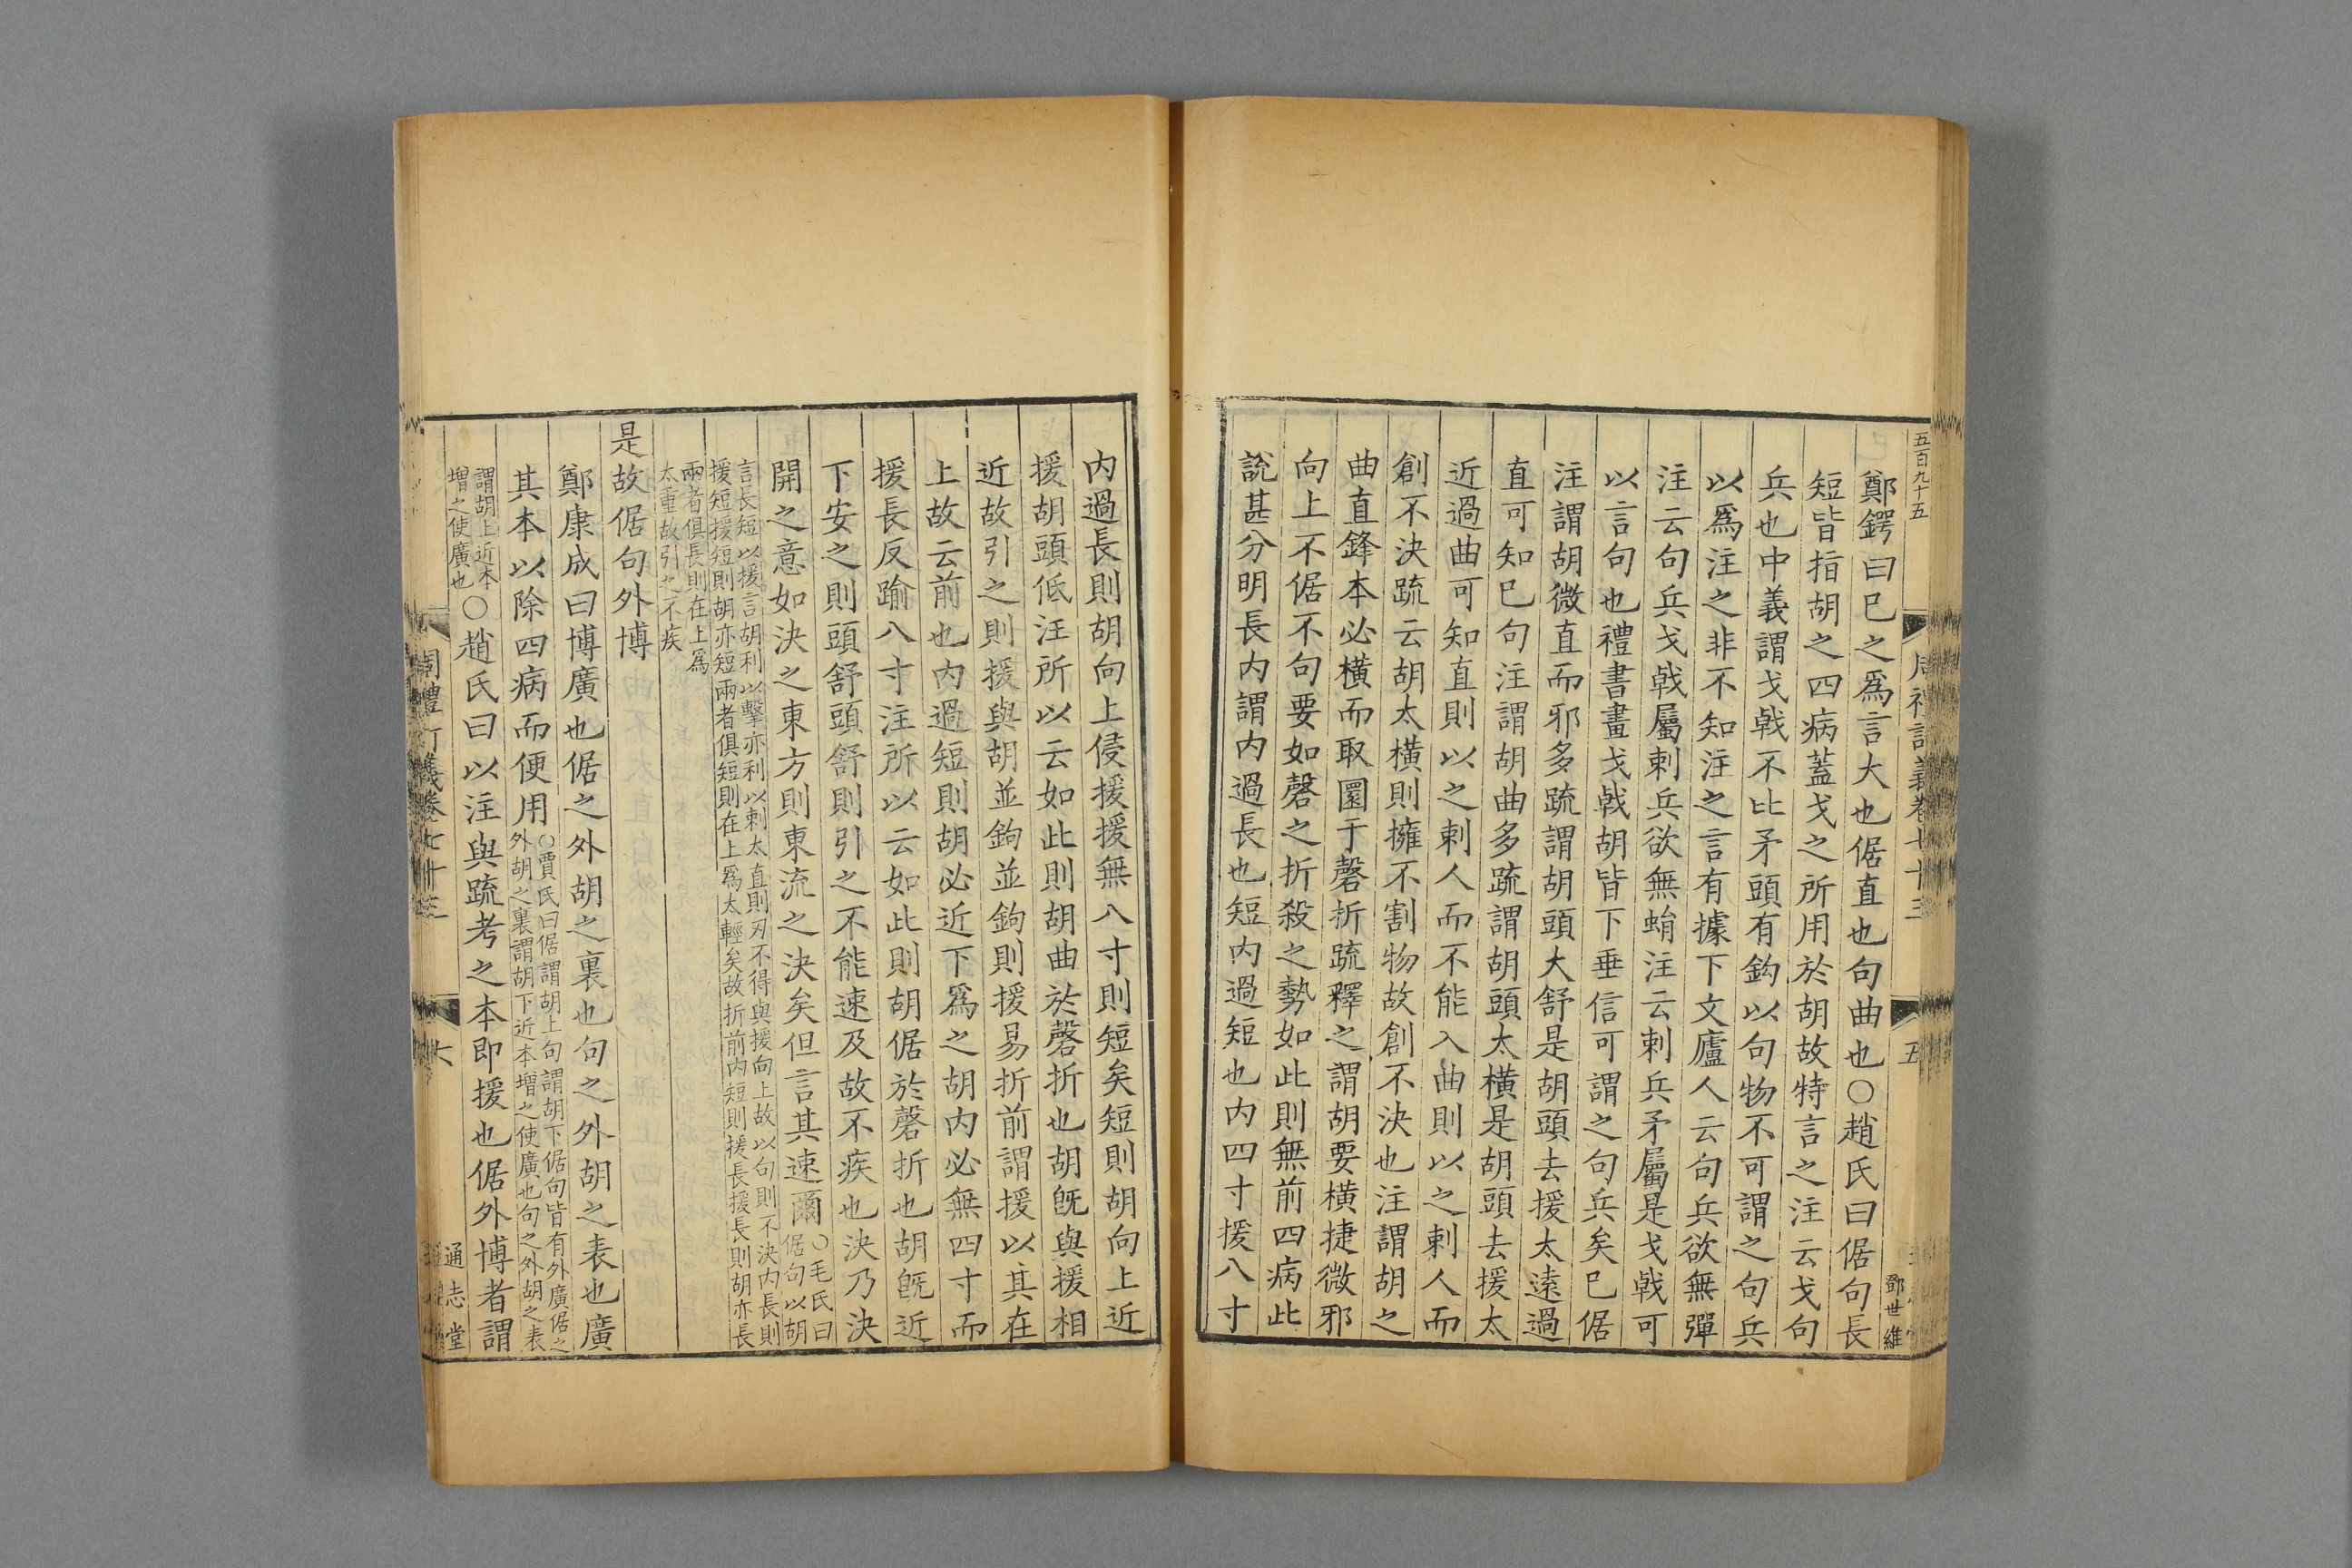 五百九十五
五
鄧世維
鄭鍔曰已之爲言大也倨直也句曲也○趙氏曰倨句長
短皆指胡之四病蓋戈之所用於胡故特言之注云戈句
兵也中義謂戈戟不比矛頭有鈎以句物不可謂之句兵
以爲注之非不知注之言有據下文廬人云句兵欲無彈
注云句兵戈戟屬刺兵欲無蜎注云刺兵矛屬是戈戟可
以言句也禮書畫戈戟胡皆下垂信可謂之句兵矣已倨
注謂胡微直而邪多疏謂胡頭大舒是胡頭去援太遠過
直可知已句注謂胡曲多疏謂胡頭太橫是胡頭去援太
近過曲可知直則以之刺人而不能入曲則以之刺人而
創不決疏云胡太橫則擁不割物故創不決也注謂胡之
曲直鋒本必橫而取圜于磬折疏釋之謂胡要橫捷微邪
向上不倨不句要如磬之折殺之勢如此則無前四病此
說甚分明長內謂內過長也短內過短也內四寸援八寸
內過長則胡向上侵援援無八寸則短矣短則胡向上近
援胡頭低注所以云如此則胡曲於磬折也胡旣與援相
近故引之則援與胡並鉤並鉤則援易折前謂援以其在
上故云前也內過短則胡必近下爲之胡內必無四寸而
援長反踰八寸注所以云如此則胡倨於磬折也胡旣近
下安之則頭舒頭舒則引之不能速及故不疾也決乃決
開之意如決之東方則東流之決矣但言其速爾○毛氏曰
倨句以胡
言長短以援言胡利以擊亦利以刺太直則刃不得與援向上故以句則不決內長則
援短援短則胡亦短兩者俱短則在上爲太輕矣故折前內短則援長援長則胡亦長
兩者俱長則在上爲
太重故引之不疾
是故倨句外博
鄭康成曰博廣也倨之外胡之裏也句之外胡之表也廣
其本以除四病而便用○賈氏曰倨謂胡上句謂胡下倨句皆有外廣倨之
外胡之裏謂胡下近本增之使廣也句之外胡之表
謂胡上近本
增之使廣也○趙氏曰以注與疏考之本即援也倨外博者謂
周禮訂義卷七十三
六
通志堂